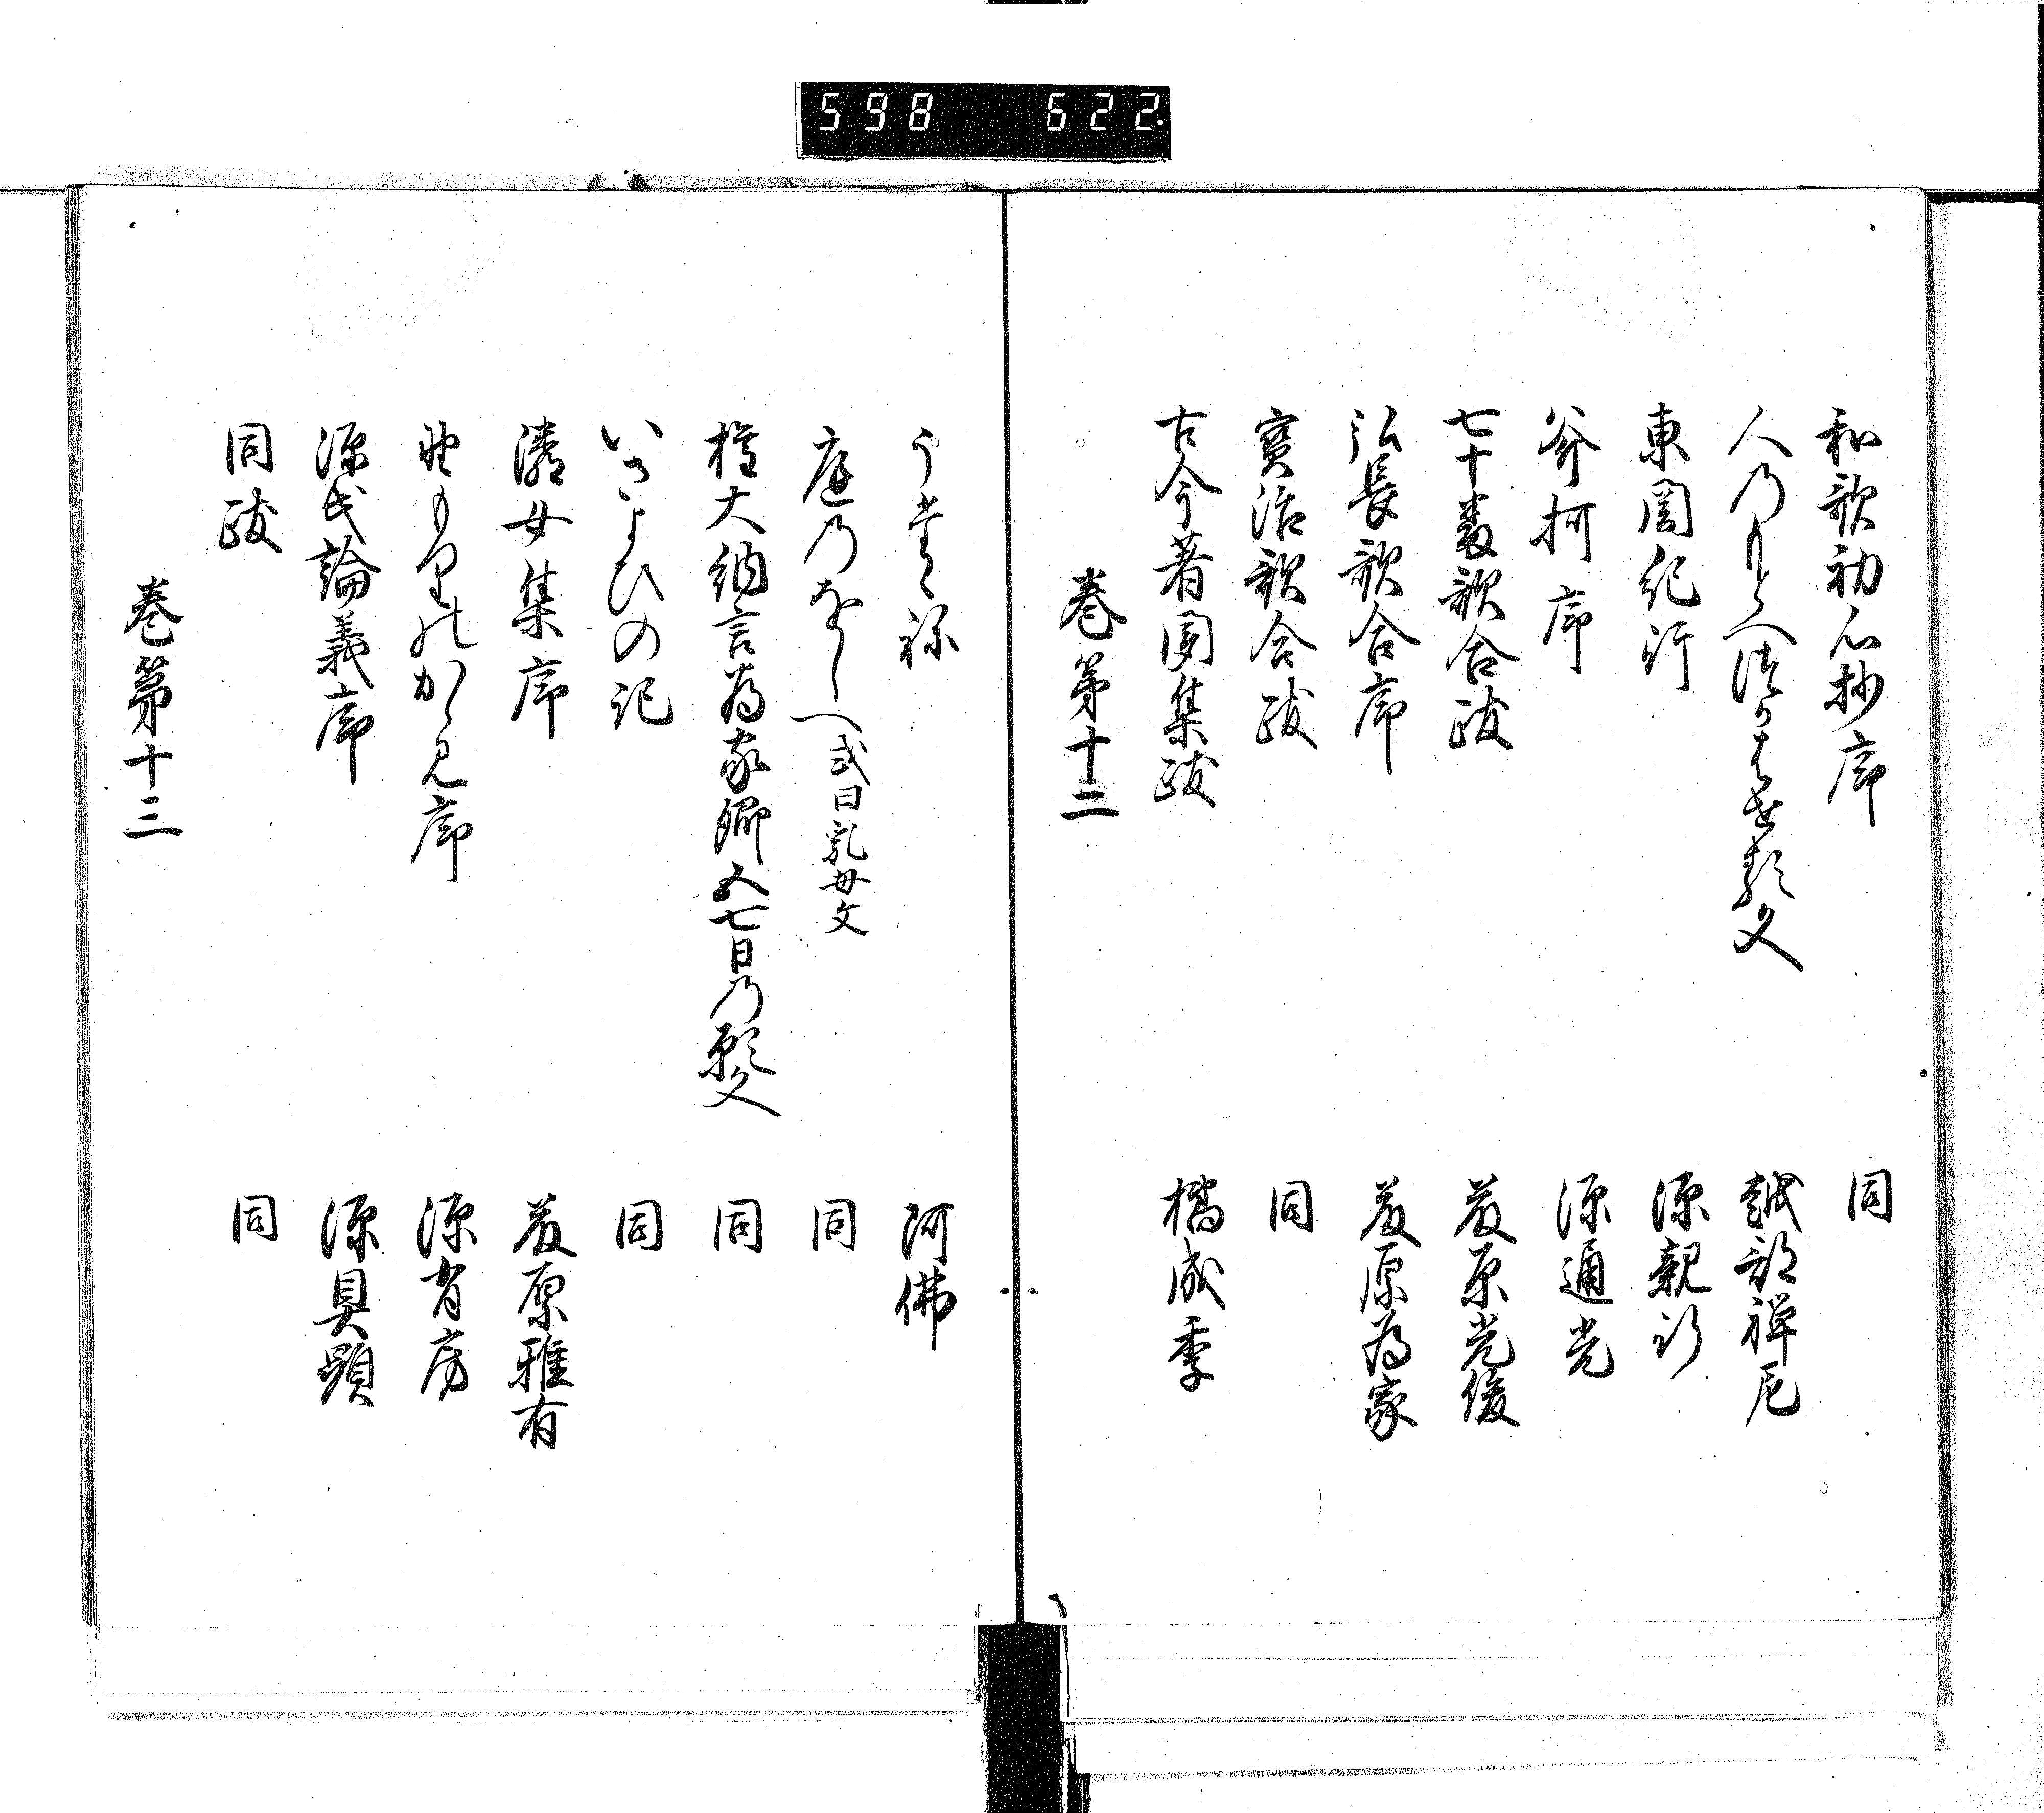 598 622
和歌初心抄序 同
人のもとへつかはせる文 越部禅尼
東関紀行 源親行
斧柯序 源通光
七十番歌合跋 藤原光俊
弘長歌合序 藤原為家
寶治歌合跋 同
古今著聞集跋 橘成季
巻第十二
うたゝね 阿佛
庭のをしへ 或曰乳母文 同
権大納言為家卿五七日の願文 同
いさよひの記 同
隣女集序 藤原雅有
野もりのかゝみ序 源有房
源氏論義序 源具顕
同跋 同
巻第十三